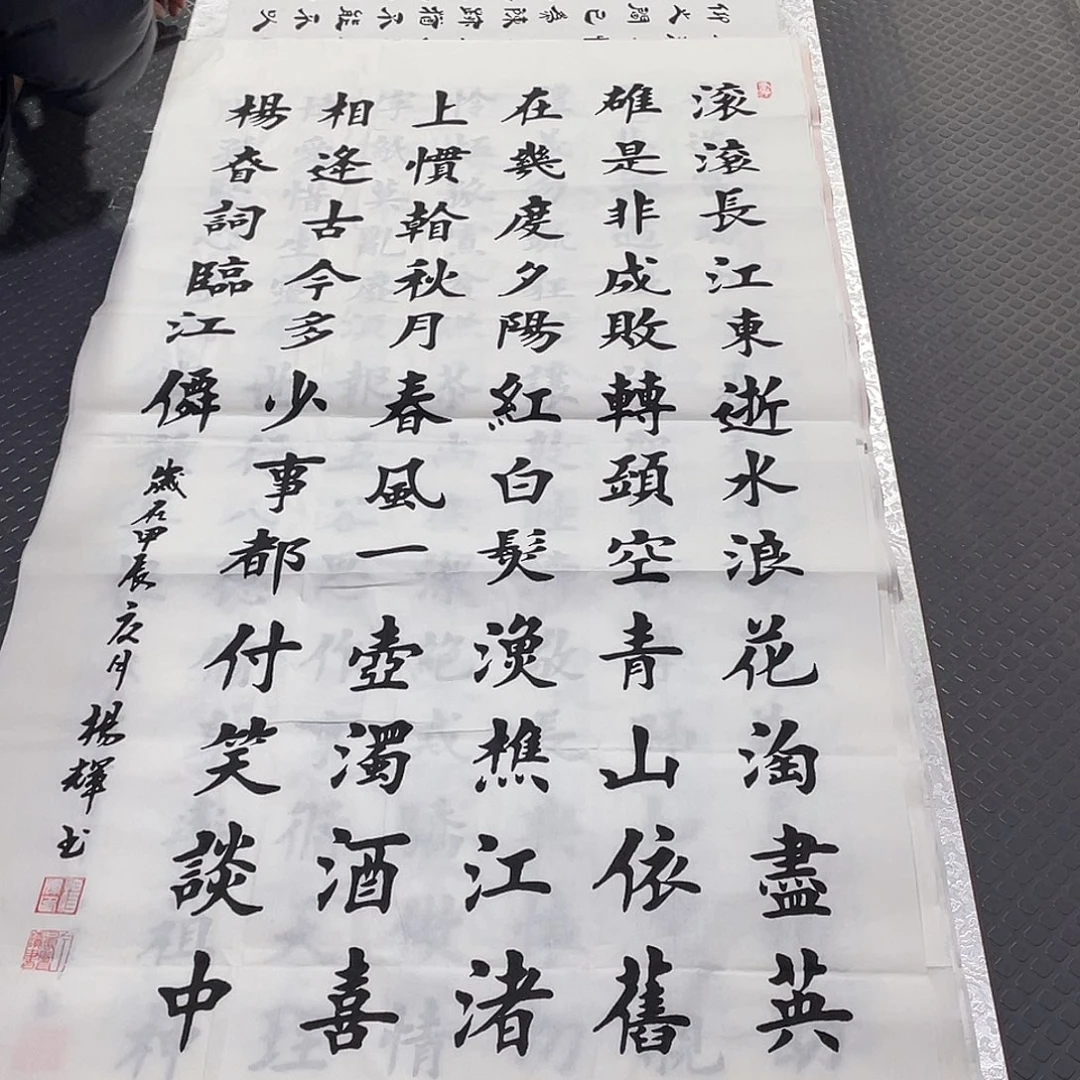 仰之間已為陳跡猶不能不以
滚滚長江東逝水浪花淘盡英
雄是非成敗轉頭空青山依舊
在幾度夕陽紅白髮漁樵江渚
上慣看秋月春風一壺濁酒喜
相逢古今多少事都付笑談中
楊昚詞臨江僊
歲在甲辰夏月楊輝书